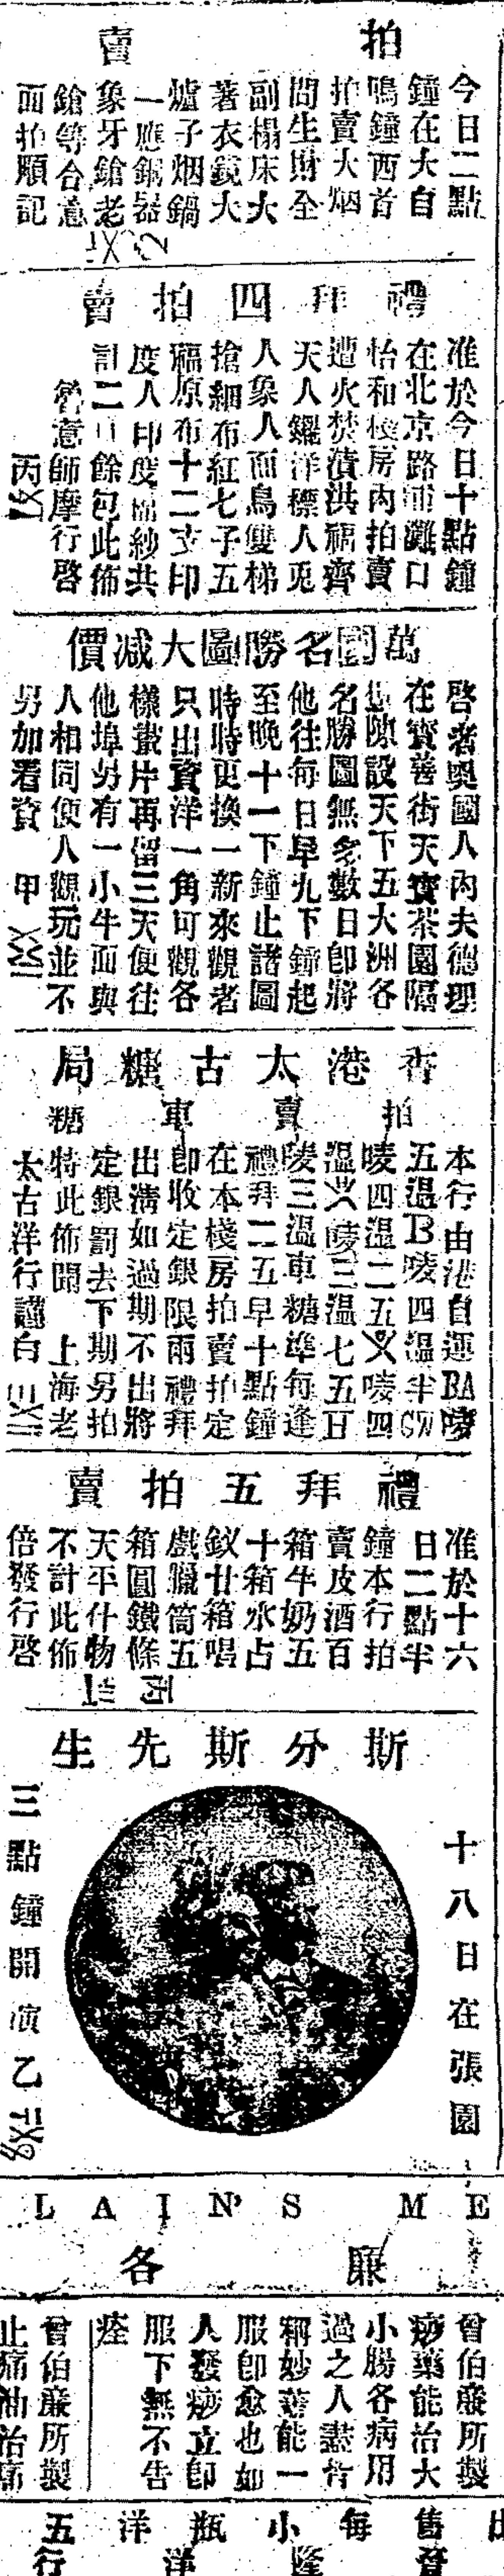 拍賣
今日二點
鐘在大自
鳴鐘西首
拍賣大烟
間生財全
副榻床大
著衣鏡大
爐子烟鍋
一應銅器
象牙鎗老
鎗等合意
面拍順記
禮拜四拍賣
准於今日十點鐘
在北京路浦灘口
怡和棧房內拍賣
遭火焚漬洪福齊
天人鑼洋標人兎
人象人面鳥雙梯
搶細布紅七子五
福原布十二支印
度人印度棉紗共
計二百餘包此佈
魯意師摩行啓
丙
萬國名勝圖大减價
啓者奧國人內夫德理
在寶善街天寶茶園隔
街陳設天下五大洲各
名勝圖無多數日卽將
他往每日早九下鐘起
至晚十一下鐘止諸圖
時時更換一新來觀者
只出資洋一角可觀各
樣景片再留三天便往
他埠另有一小牛面與
人相同使人觀玩並不
另加看資 甲
香港太古糖局
拍賣車糖
本行由港自運BA嘜
五溫B嘜四溫半CW
嘜四溫二五乂嘜四
溫乂嘜三溫七五H
嘜三溫車糖準每逢
禮拜二五早十點鐘
在本棧房拍賣拍定
卽收定銀限兩禮拜
出淸如過期不出將
定銀罰去下期另拍
特此佈聞 上海老
太古洋行謹白
禮拜五拍賣
准於十六
日二點半
鐘本行拍
賣皮酒百
箱牛奶五
十箱水占
釹廿箱唱
戲獵筒五
箱圓鐵條
天平什物
不計此佈
倍發行啓
斯分斯先生
十八日在張園
三點鐘開演 乙
LAIN'S ME
廉各
曾伯廉所製
痧藥能治大
小腸各病用
過之人盡皆
稱妙蓋能一
服卽愈也如
人發痧立卽
服下無不告
痊
曾伯廉所製
止痛油治痛
出售每小瓶洋五